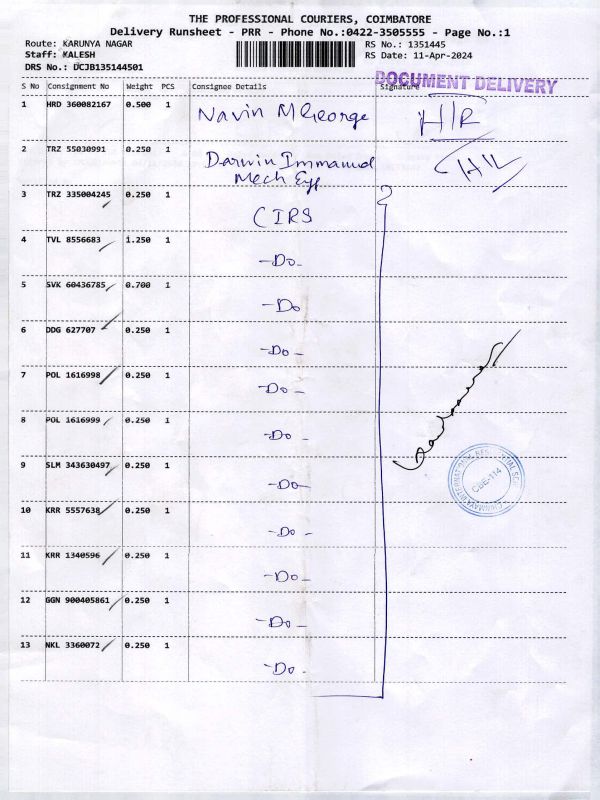 THE PROFESSIONAL COURIERS, COIMBATORE
Delivery Runsheet - PRR - Phone No.:0422-3505555 - Page No.:1
Route: KARUNYA NAGAR
RS No.: 1351445
Staff: KALESH
RS Date: 11-Apr-2024
DRS No.: DCJB135144501
DOCUMENT DELIVERY
S No Consignment No Weight PCS Consignee Details Signature
1 HRD 360082167 0.500 1 Navin M George H/R
2 TRZ 55030991 0.250 1 Darwin Immanuel
Mech Egg
3 TRZ 335004245 0.250 1 CIRS
4 TVL 8556683 1.250 1 -Do-
5 SVK 60436785 0.700 1 -Do
6 DDG 627707 0.250 1 -Do-
7 POL 1616998 0.250 1 -Do-
8 POL 1616999 0.250 1 -Do-
9 SLM 343630497 0.250 1 -Do-
10 KRR 5557638 0.250 1 -Do-
11 KRR 1340596 0.250 1 -Do-
12 GGN 900405861 0.250 1 -Do-
13 NKL 3360072 0.250 1 -Do-
CHINMAYA INTERNATIONAL RESIDENTIAL SCHOOL
CBE-114